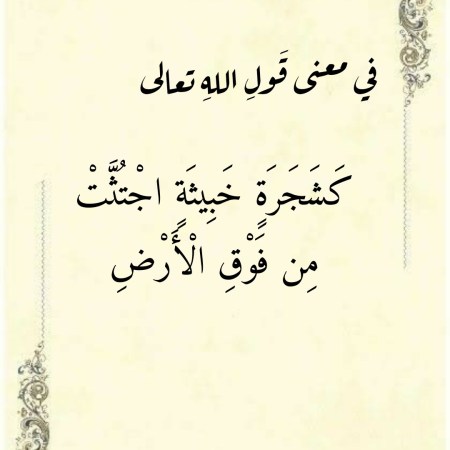 في معنى قَولِ اللهِ تعالى
كَشَجَرَةٍ خَبِيثَةٍ اجْتُثَّتْ
مِن فَوْقِ الْأَرْضِ